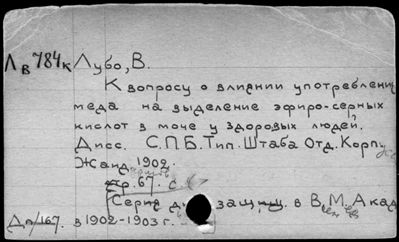 Лв 784к Лубо, В.
К вопросу о влиянии употребления
меда на выделение эфиро-серных
кислот в моче у здоровых людей.
Дисс. С.П.Б. Тип. Штаба Отд. Корп.
Жанд. 1902.
стр. 67. с.
Серия дис. защищ. в В. М. Акад
Дп/167. в 1902-1903 г.